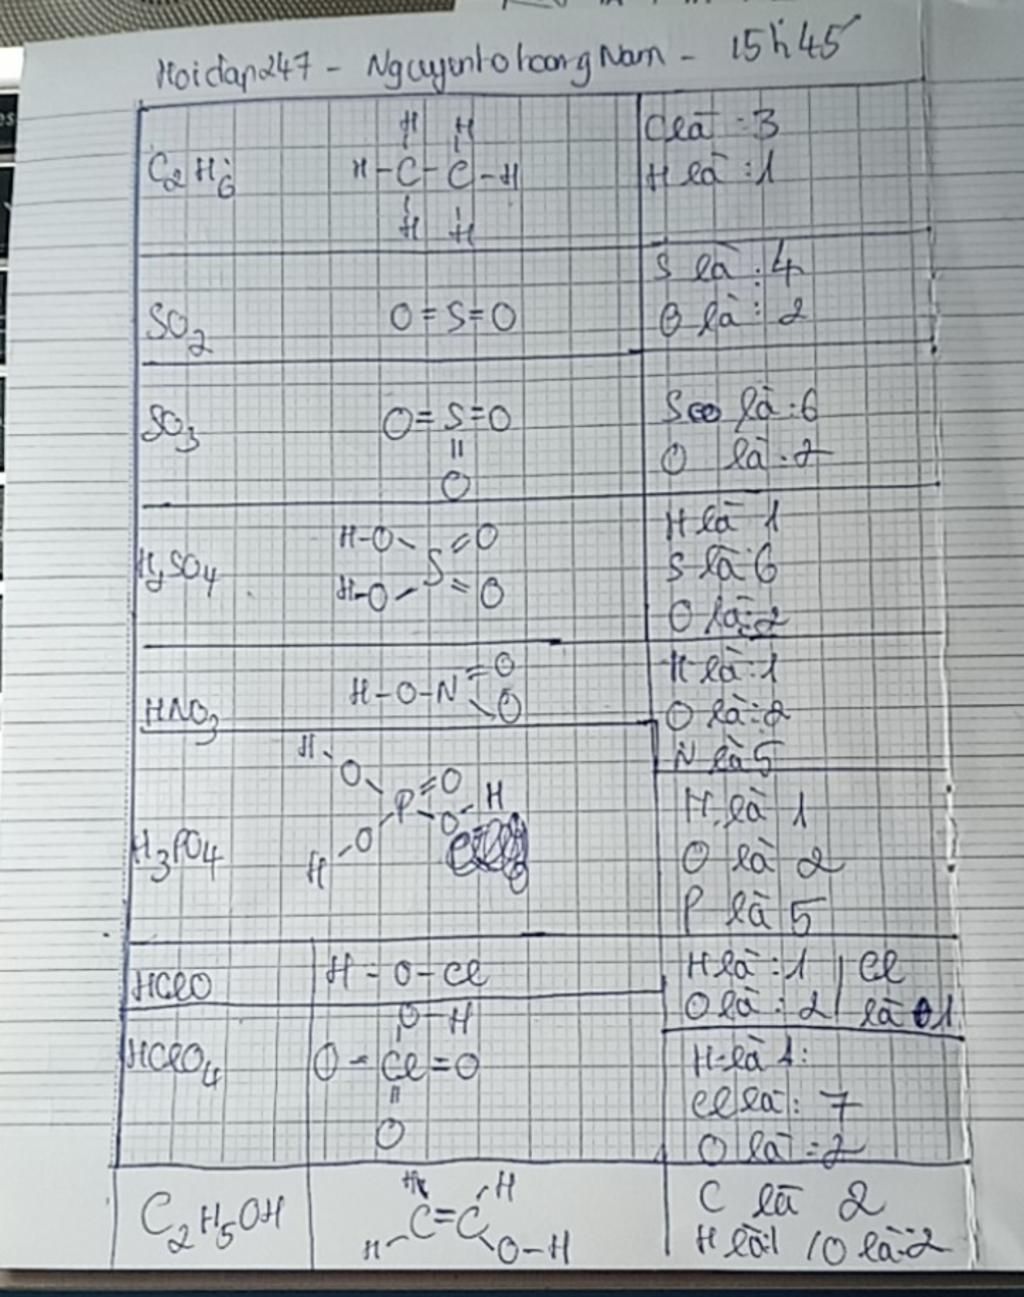 Hoidap247 - Nguyentohoang Nam - 15h45'
C₂H₆
H H
H-C-C-H
H H
C là : 3
H là : 1
SO₂
O=S=O
S là : 4
O là : 2
SO₃
O=S=O
O
S là : 6
O là : 2
H₂SO₄
H-O S =O
H-O =O
H là 1
S là 6
O là : 2
HNO₃
H-O-N =O
O
H là : 1
O là : 2
N là 5
H₃PO₄
H
O P =O
O H
O
H
H là 1
O là 2
P là 5
HClO
H-O-Cl
H là : 1 | Cl
O là : 2 | là 1
HClO₄
O-H
O=Cl=O
O
H là 1:
Cl là : 7
O là : 2
C₂H₅OH
H H
C=C
H O-H
C là 2
H là 1 / O là : 2